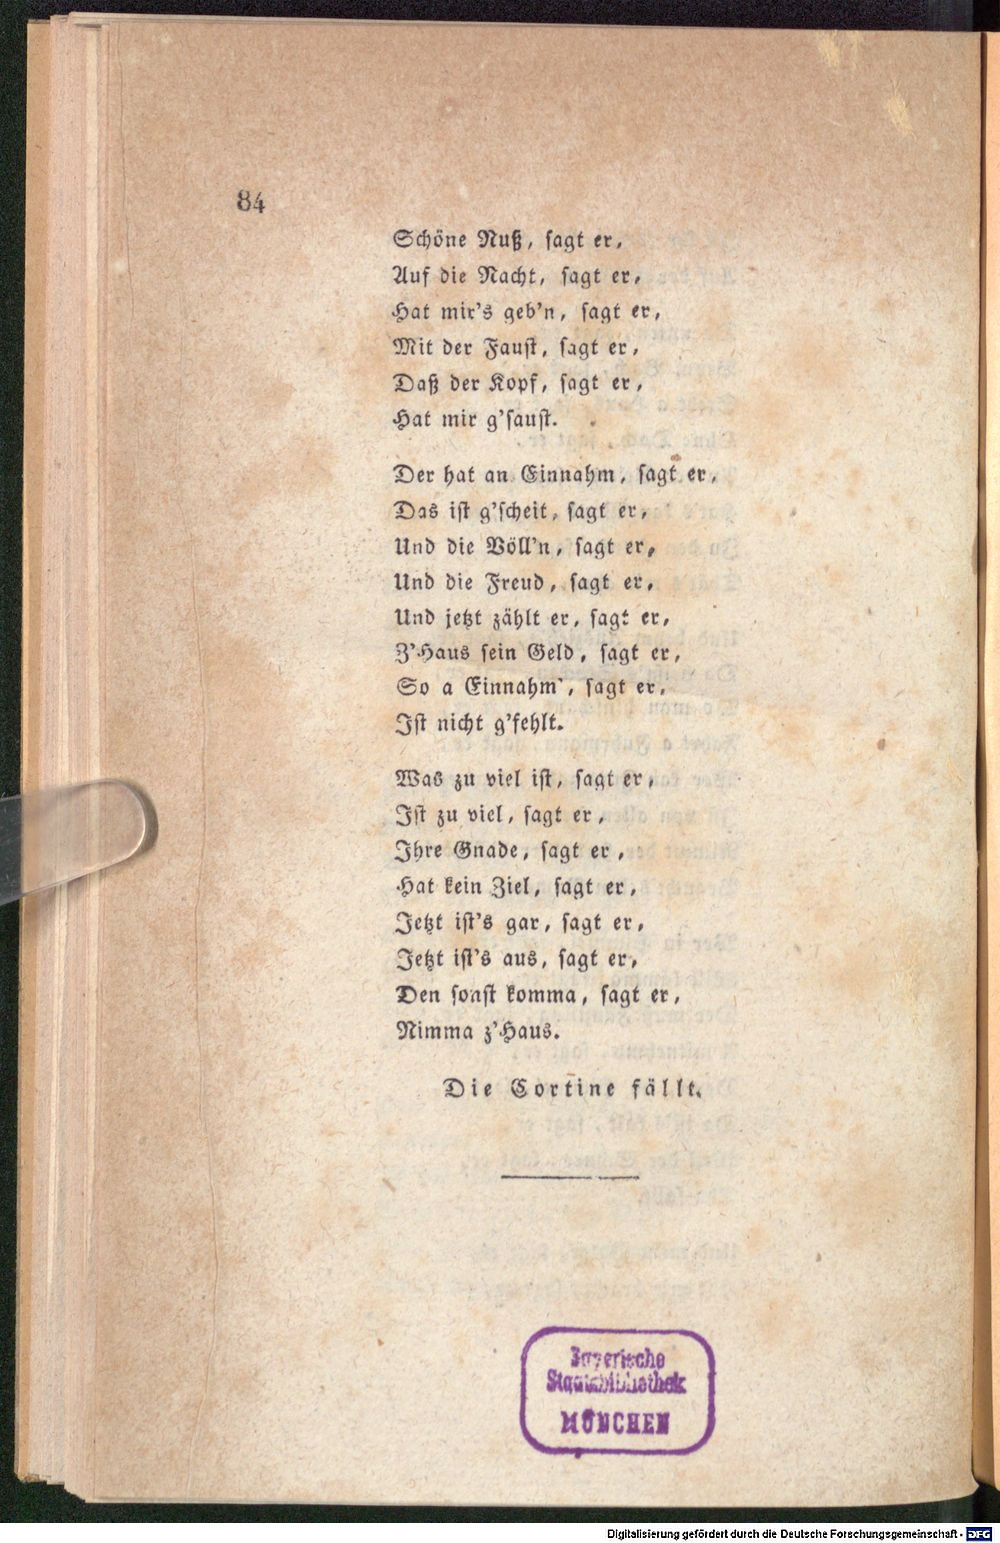 84
Schöne Nuß, sagt er,
Auf die Nacht, sagt er,
Hat mir's geb'n, sagt er,
Mit der Faust, sagt er,
Daß der Kopf, sagt er,
Hat mir g'saust.
Der hat an Einnahm, sagt er,
Das ist g'scheit, sagt er,
Und die Völl'n, sagt er,
Und die Freud, sagt er,
Und jetzt zählt er, sagt er,
Z'Haus sein Geld, sagt er,
So a Einnahm', sagt er,
Ist nicht g'fehlt.
Was zu viel ist, sagt er,
Ist zu viel, sagt er,
Ihre Gnade, sagt er,
Hat kein Ziel, sagt er,
Jetzt ist's gar, sagt er,
Jetzt ist's aus, sagt er,
Den sonst komma, sagt er,
Nimma z'Haus.
Die Cortine fällt.
Bayerische
Staatsbibliothek
MÜNCHEN
Digitalisierung gefördert durch die Deutsche Forschungsgemeinschaft - DFG